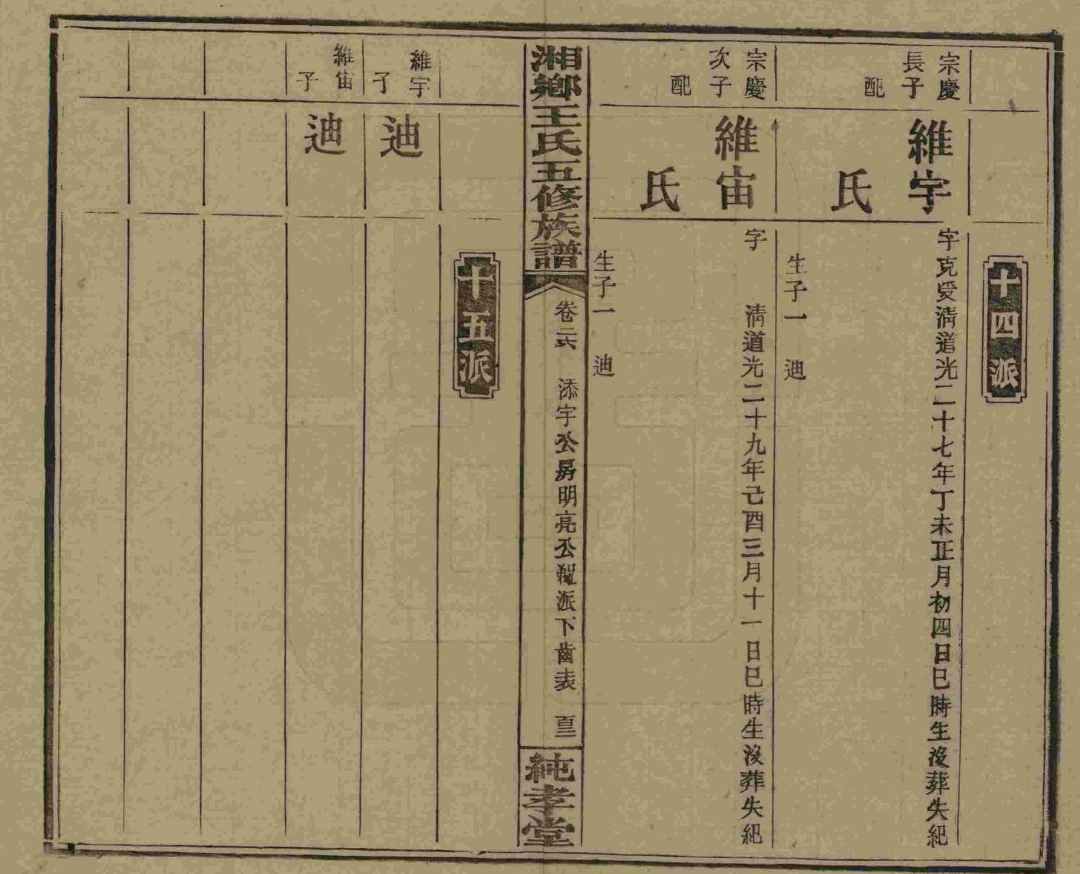 十四派
宗慶
長子
維宇
字克受清道光二十七年丁未正月初四日巳時生沒葬失紀
配
氏
生子一 迪
宗慶
次子
維宙
字 清道光二十九年己酉三月十一日巳時生沒葬失紀
配
氏
生子一 迪
湘鄉王氏五修族譜
卷二六 添宇公房明亮公派下齒表
純孝堂
十五派
維宇
子
迪
維宙
子
迪